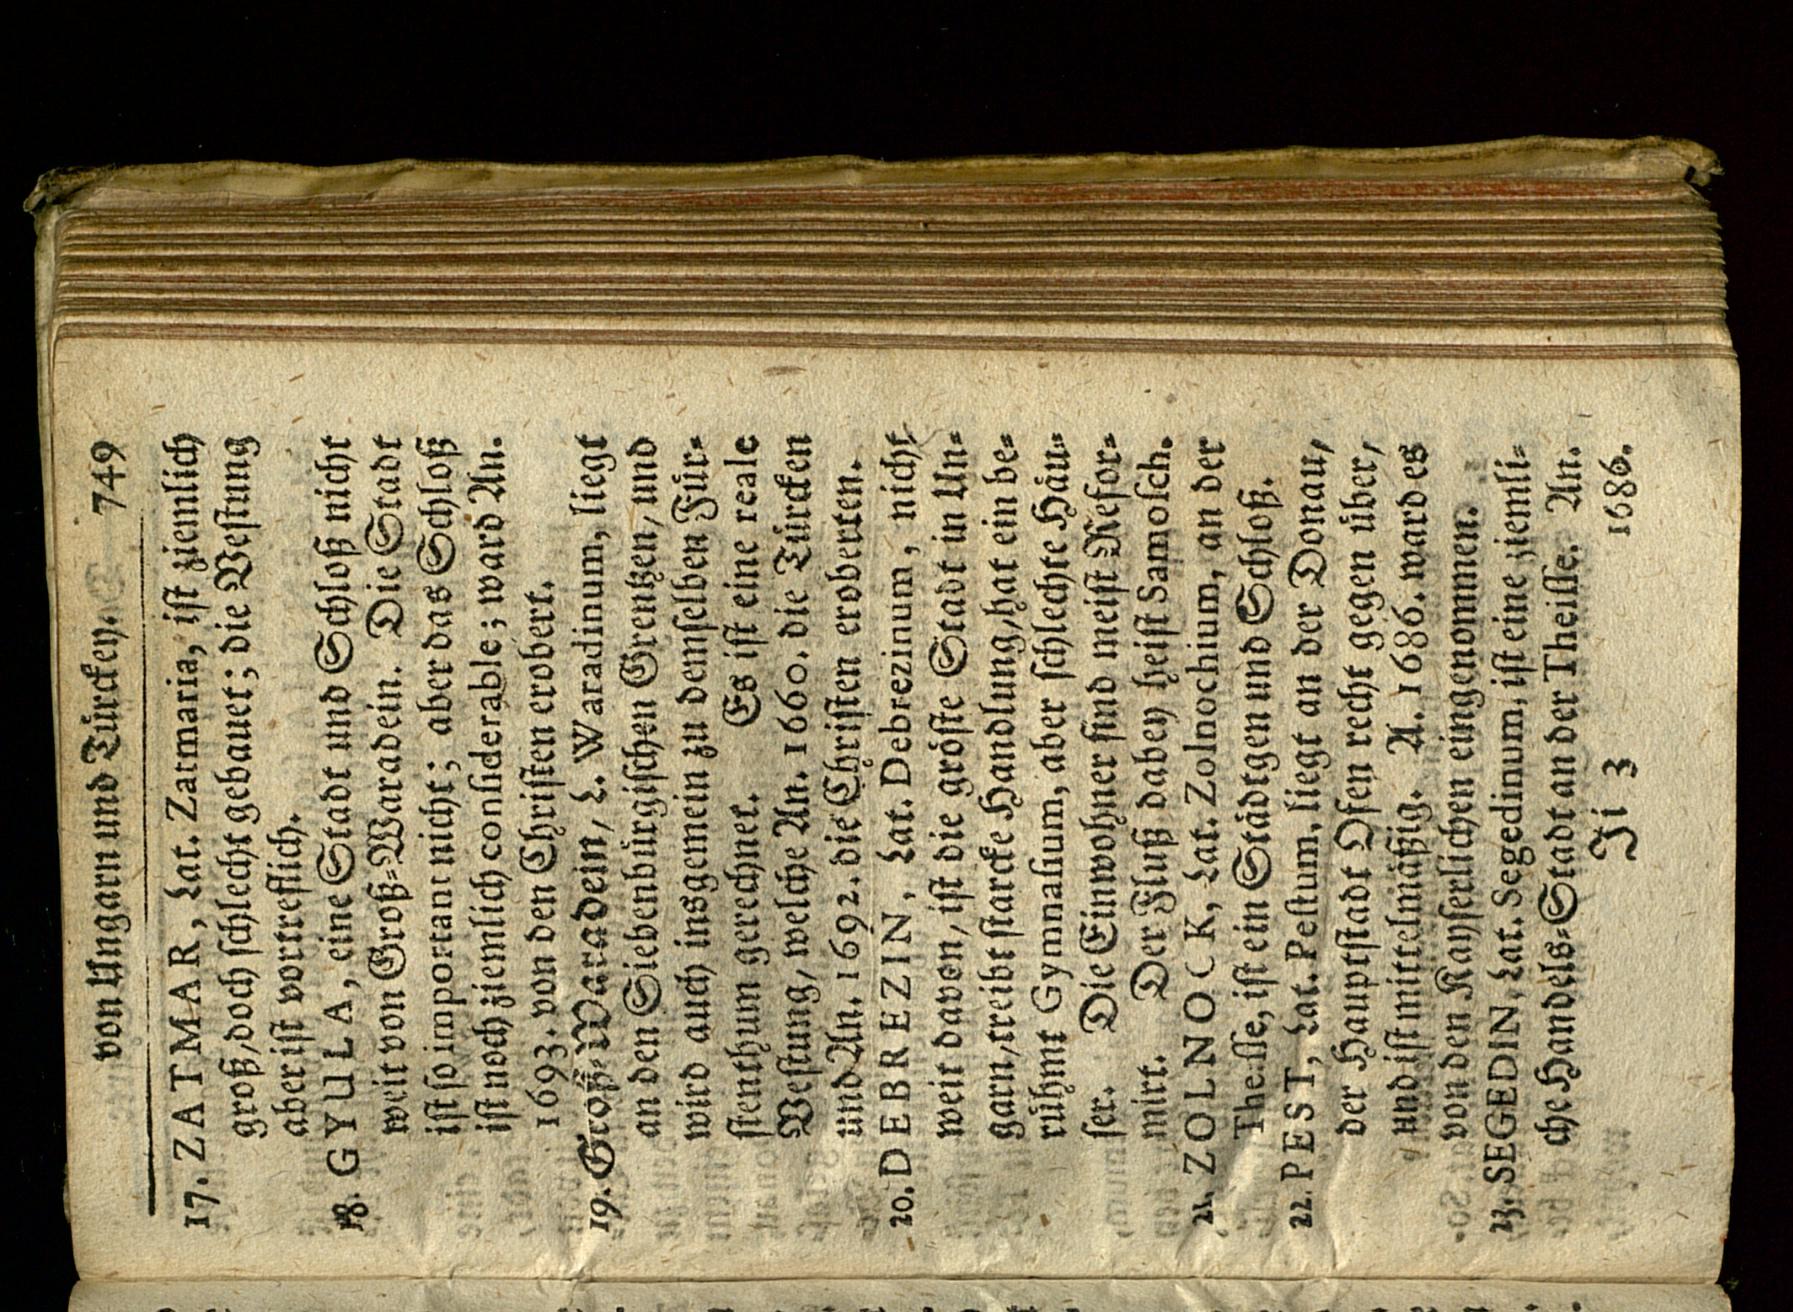 von Ungarn und Türckey. 749
17. ZATMAR, Lat. Zatmaria, ist ziemlich
groß, doch schlecht gebauet; die Vestung
aber ist vortreflich.
18. GYULA, eine Stadt und Schloß nicht
weit von Groß-Waradein. Die Stadt
ist so important nicht; aber das Schloß
ist noch ziemlich considerable; ward An.
1693. von den Christen erobert.
19. Groß-Waradein, L. Waradinum, liegt
an den Siebenbürgischen Grentzen, und
wird auch insgemein zu demselben Für-
stenthum gerechnet. Es ist eine reale
Vestung, welche An. 1660. die Türcken
und An. 1692. die Christen eroberten.
20. DEBREZIN, Lat. Debrezinum, nicht
weit davon, ist die gröste Stadt in Un-
garn, treibt starcke Handlung, hat ein be-
rühmt Gymnasium, aber schlechte Häu-
ser. Die Einwohner sind meist Refor-
mirt. Der Fluß dabey heist Samosch.
21. ZOLNOCK, Lat. Zolnochium, an der
Theisse, ist ein Städtgen und Schloß.
22. PEST, Lat. Pestum, liegt an der Donau,
der Hauptstadt Ofen recht gegen über,
und ist mittelmäßig. A. 1686. ward es
von den Kayserlichen eingenommen.
23. SEGEDIN, Lat. Segedinum, ist eine ziemli-
che Handels-Stadt an der Theisse. An.
Ji 3 1686.